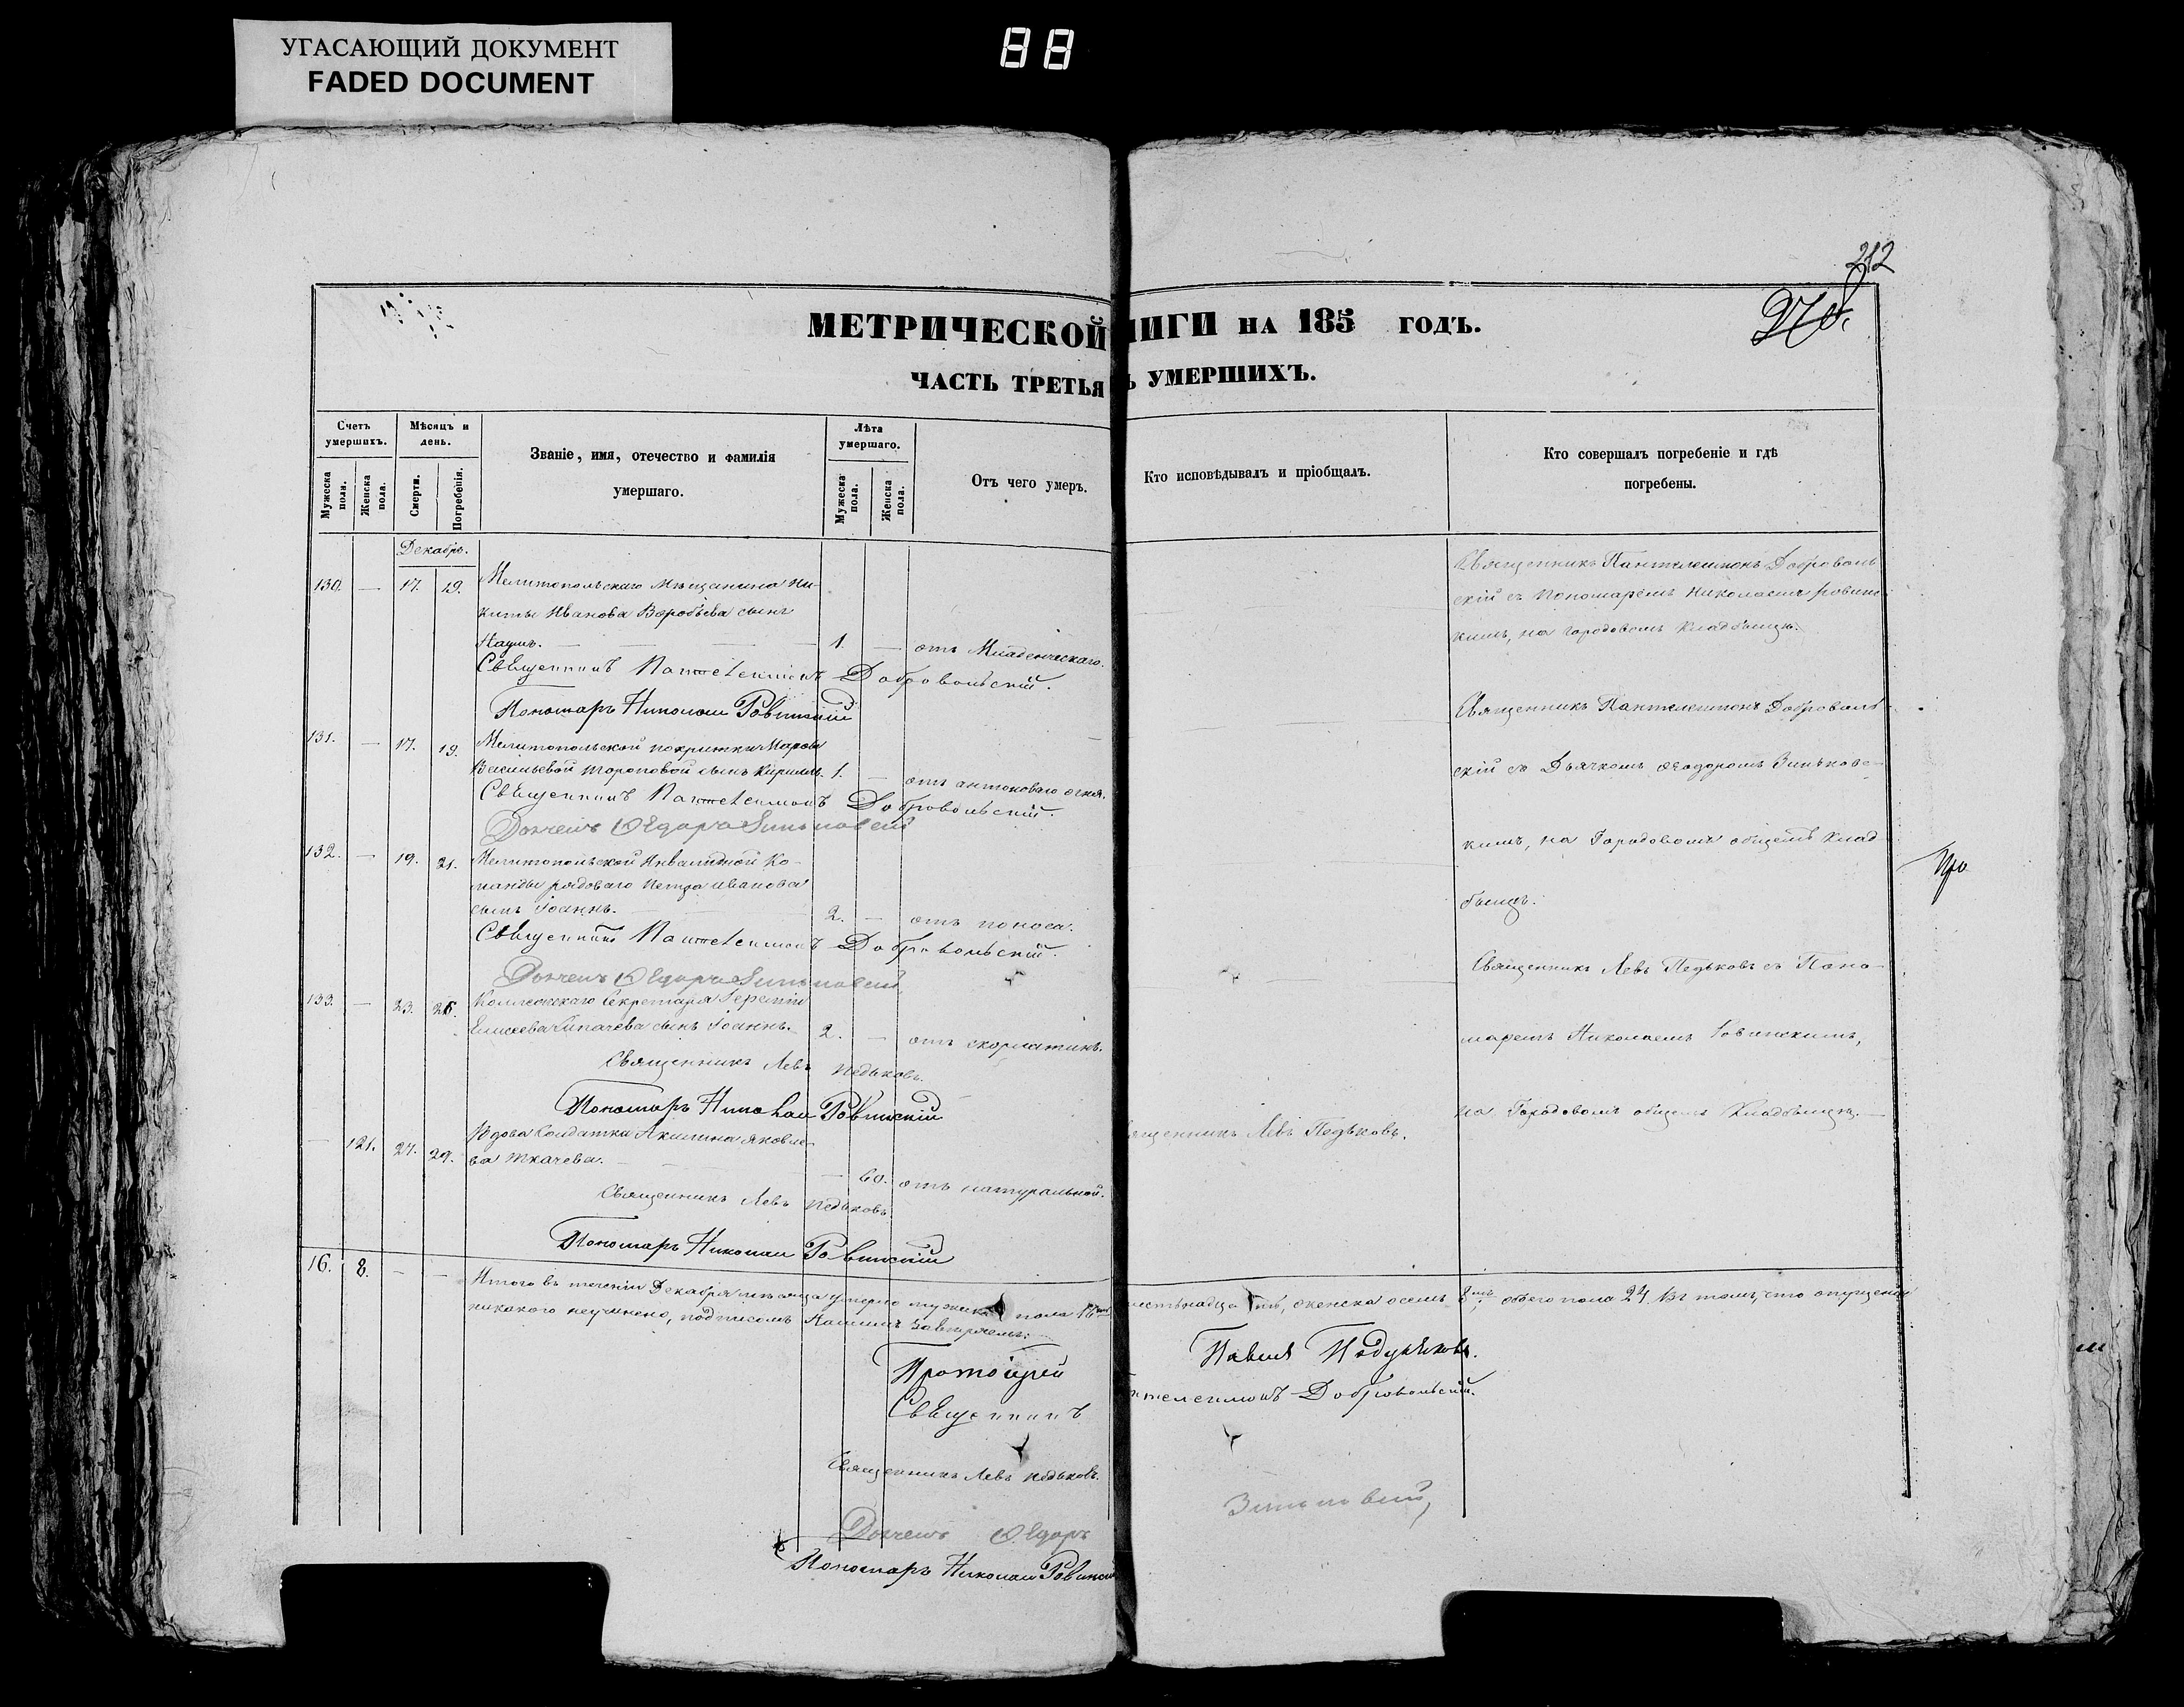 УГАСАЮЩИЙ ДОКУМЕНТ
FADED DOCUMENT
88
212
270.
МЕТРИЧЕСКОЙ
ЧАСТЬ ТРЕТЬЯ
Счетъ умершихъ.
Мужеска пола.
Женска пола.
Мѣсяцъ и день.
Смерти.
Погребенія.
Званіе, имя, отечество и фамилія
умершаго.
Лѣта умершаго.
Мужеска пола.
Женска пола.
Отъ чего умеръ.
Декабрь.
130. — 17. 19. Мелитопольскаго Мѣщанина Ни-
киты Иванова Воробьева сынъ
Наумъ. — 1. — отъ Младенческаго.
Священникъ Пантелеимонъ Добровольскій.
Пономарь Николай Ровинскій
131. — 17. 19. Мелитопольской покрытки Марфы
Васильевой Тороповой сынъ Кириллъ. 1. — отъ антонова огня.
Священникъ Пантелеимонъ Добровольскій.
Дьячекъ Ѳедоръ Зиньковскій
132. — 19. 21. Мелитопольской Инвалидной Ко-
манды рядоваго Петра Иванова
сынъ Іоаннъ. — 2. — отъ поноса.
Священникъ Пантелеимонъ Добровольскій.
Дьячекъ Ѳедоръ Зиньковскій
133. — 23. Коллежскаго Секретаря
сынъ Іоаннъ. 2. — отъ скорлатины.
Священникъ Левъ Педьковъ.
Пономарь Николай Ровинскій
— 121. 27. 29. Вдова Солдатка Акилина Яковле-
ва Ткачева. — 60. отъ натуральной.
Священникъ Левъ Педьковъ
Пономарь Николай Ровинскій
16. 8. — — Итого въ теченіи Декабря мѣсяца умерло мужеска пола 16
никакого неучинено, подписомъ нашимъ завѣряемъ:
Протоіерей
Священникъ
Священникъ Левъ Педьковъ.
Дьячекъ Ѳедоръ
Пономарь Николай Ровинскій
НИГИ НА 185 ГОДЪ.
УМЕРШИХЪ.
Кто исповѣдывалъ и пріобщалъ.
Кто совершалъ погребеніе и гдѣ
погребены.
Священникъ Пантелеимонъ Доброволь
скій съ Пономаремъ Николаемъ Ровинс
кимъ, на городовомъ Кладбищѣ.
Священникъ Пантелеимонъ Доброволь
скій съ Дьячкомъ Ѳеодоромъ Зиньковс-
кимъ, на Городовомъ общемъ Клад
бищѣ.
Священникъ Левъ Педьковъ съ Поно-
маремъ Николаемъ Ровинскимъ,
на Городовомъ общемъ Кладбищѣ. —
ященникъ Левъ Педьковъ.
естьнадца ть, женска осемь 8 обоего пола 24. Въ томъ, что опущенія
Павелъ
телеимонъ Добровольскій.
Зиньковскій,